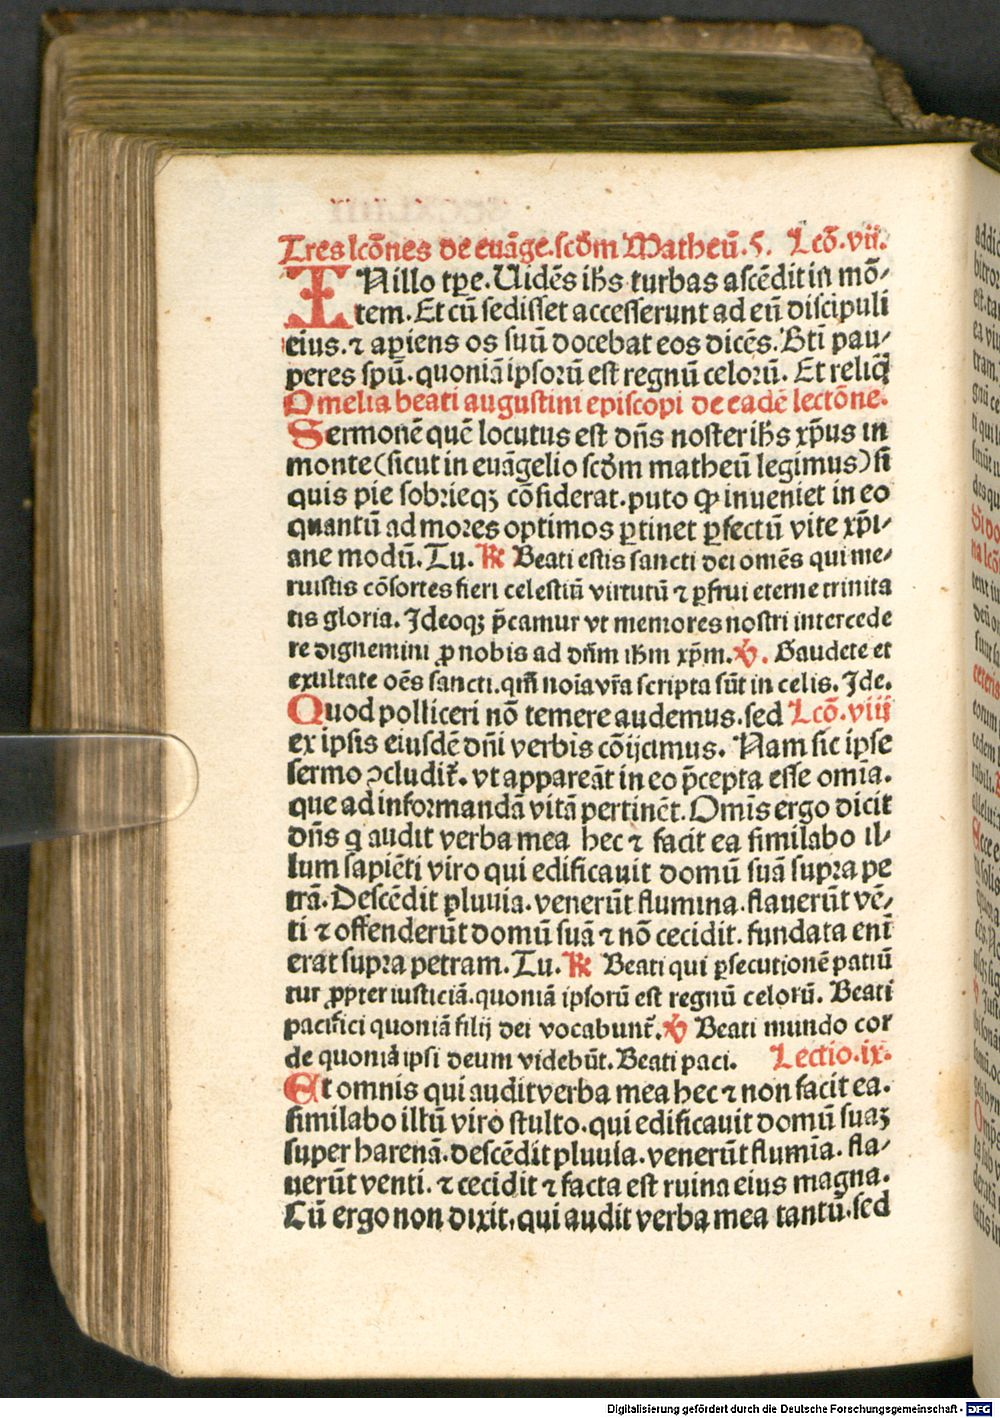 Tres lcōnes de euāge. scd̄m Matheū. 5. Lcō. vii.
IN illo tp̄e. Uidēs ih̄s turbas ascēdit in mō-
tem. Et cū sedisset accesserunt ad eū discipuli
eius. ⁊ aperiens os suū docebat eos dicēs. Bt̄i pau-
peres spū. quoniā ipsorū est regnū celorū. Et reliq̄
Omelia beati augustini episcopi de eadē lectōne.
Sermonē quē locutus est dn̄s noster ih̄s xp̄us in
monte (sicut in euāgelio scd̄m matheū legimus) si
quis pie sobrieqꝫ cōsiderat. puto ꝙ inueniet in eo
quantū ad mores optimos ꝑtinet ꝑfectū vite xp̄i-
ane modū. Tu. ℟ Beati estis sancti dei omēs qui me-
ruistis cōsortes fieri celestiū virtutū ⁊ ꝑfrui eterne trinita
tis gloria. Ideoqꝫ p̄camur vt memores nostri intercede
re dignemini ꝓ nobis ad dn̄m ih̄m xp̄m. ℣. Gaudete et
exultate oēs sancti. qm̄ noīa vr̄a scripta sūt in celis. Ide.
Quod polliceri nō temere audemus. sed Lcō. viij
ex ipsis eiusdē dn̄i verbis cōijcimus. Nam sic ipse
sermo ꝯcludit̄. vt appareāt in eo p̄cepta esse omīa.
que ad informandā vitā pertinēt. Omīs ergo dicit
dn̄s q̇ audit verba mea hec ⁊ facit ea similabo il-
lum sapiēti viro qui edificauit domū suā supra pe
trā. Descēdit pluuia. venerūt flumina. flauerūt vē-
ti ⁊ offenderūt domū suā ⁊ nō cecidit. fundata enī
erat supra petram. Tu. ℟ Beati qui ꝑsecutionē patiū
tur ꝓpter iusticiā. quoniā ipsorū est regnū celorū. Beati
pacifici quoniā filij dei vocabunt̄. ℣ Beati mundo cor
de quoniā ipsi deum videbūt. Beati paci. Lectio. ix.
Et omnis qui audit verba mea hec ⁊ non facit ea.
similabo illū viro stulto. qui edificauit domū suaꝫ
super harenā. descēdit pluuia. venerūt flumīa. fla-
uerūt venti. ⁊ cecidit ⁊ facta est ruina eius magna.
Cū ergo non dixit, qui audit verba mea tantū. sed
Digitalisierung gefördert durch die Deutsche Forschungsgemeinschaft - DFG